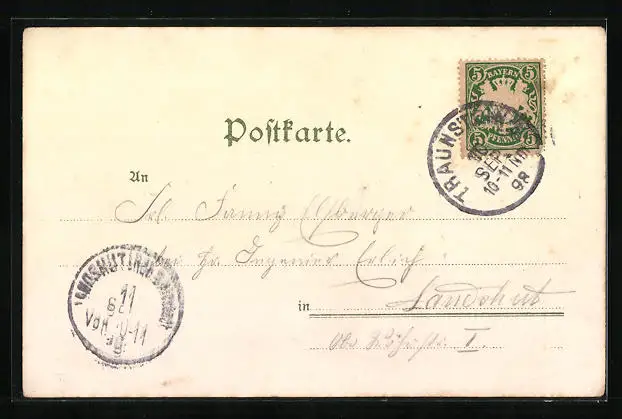 5 BAYERN 5
5 PFENNIG 5
TRAUNSTEIN
SEP
10-11 NM
98
Postkarte.
An
Frl. Fanny
bei Hr. Ingenieur Erlich
in Landshut
I.
LANDSHUT
11
SEP
VOR 10-11
98